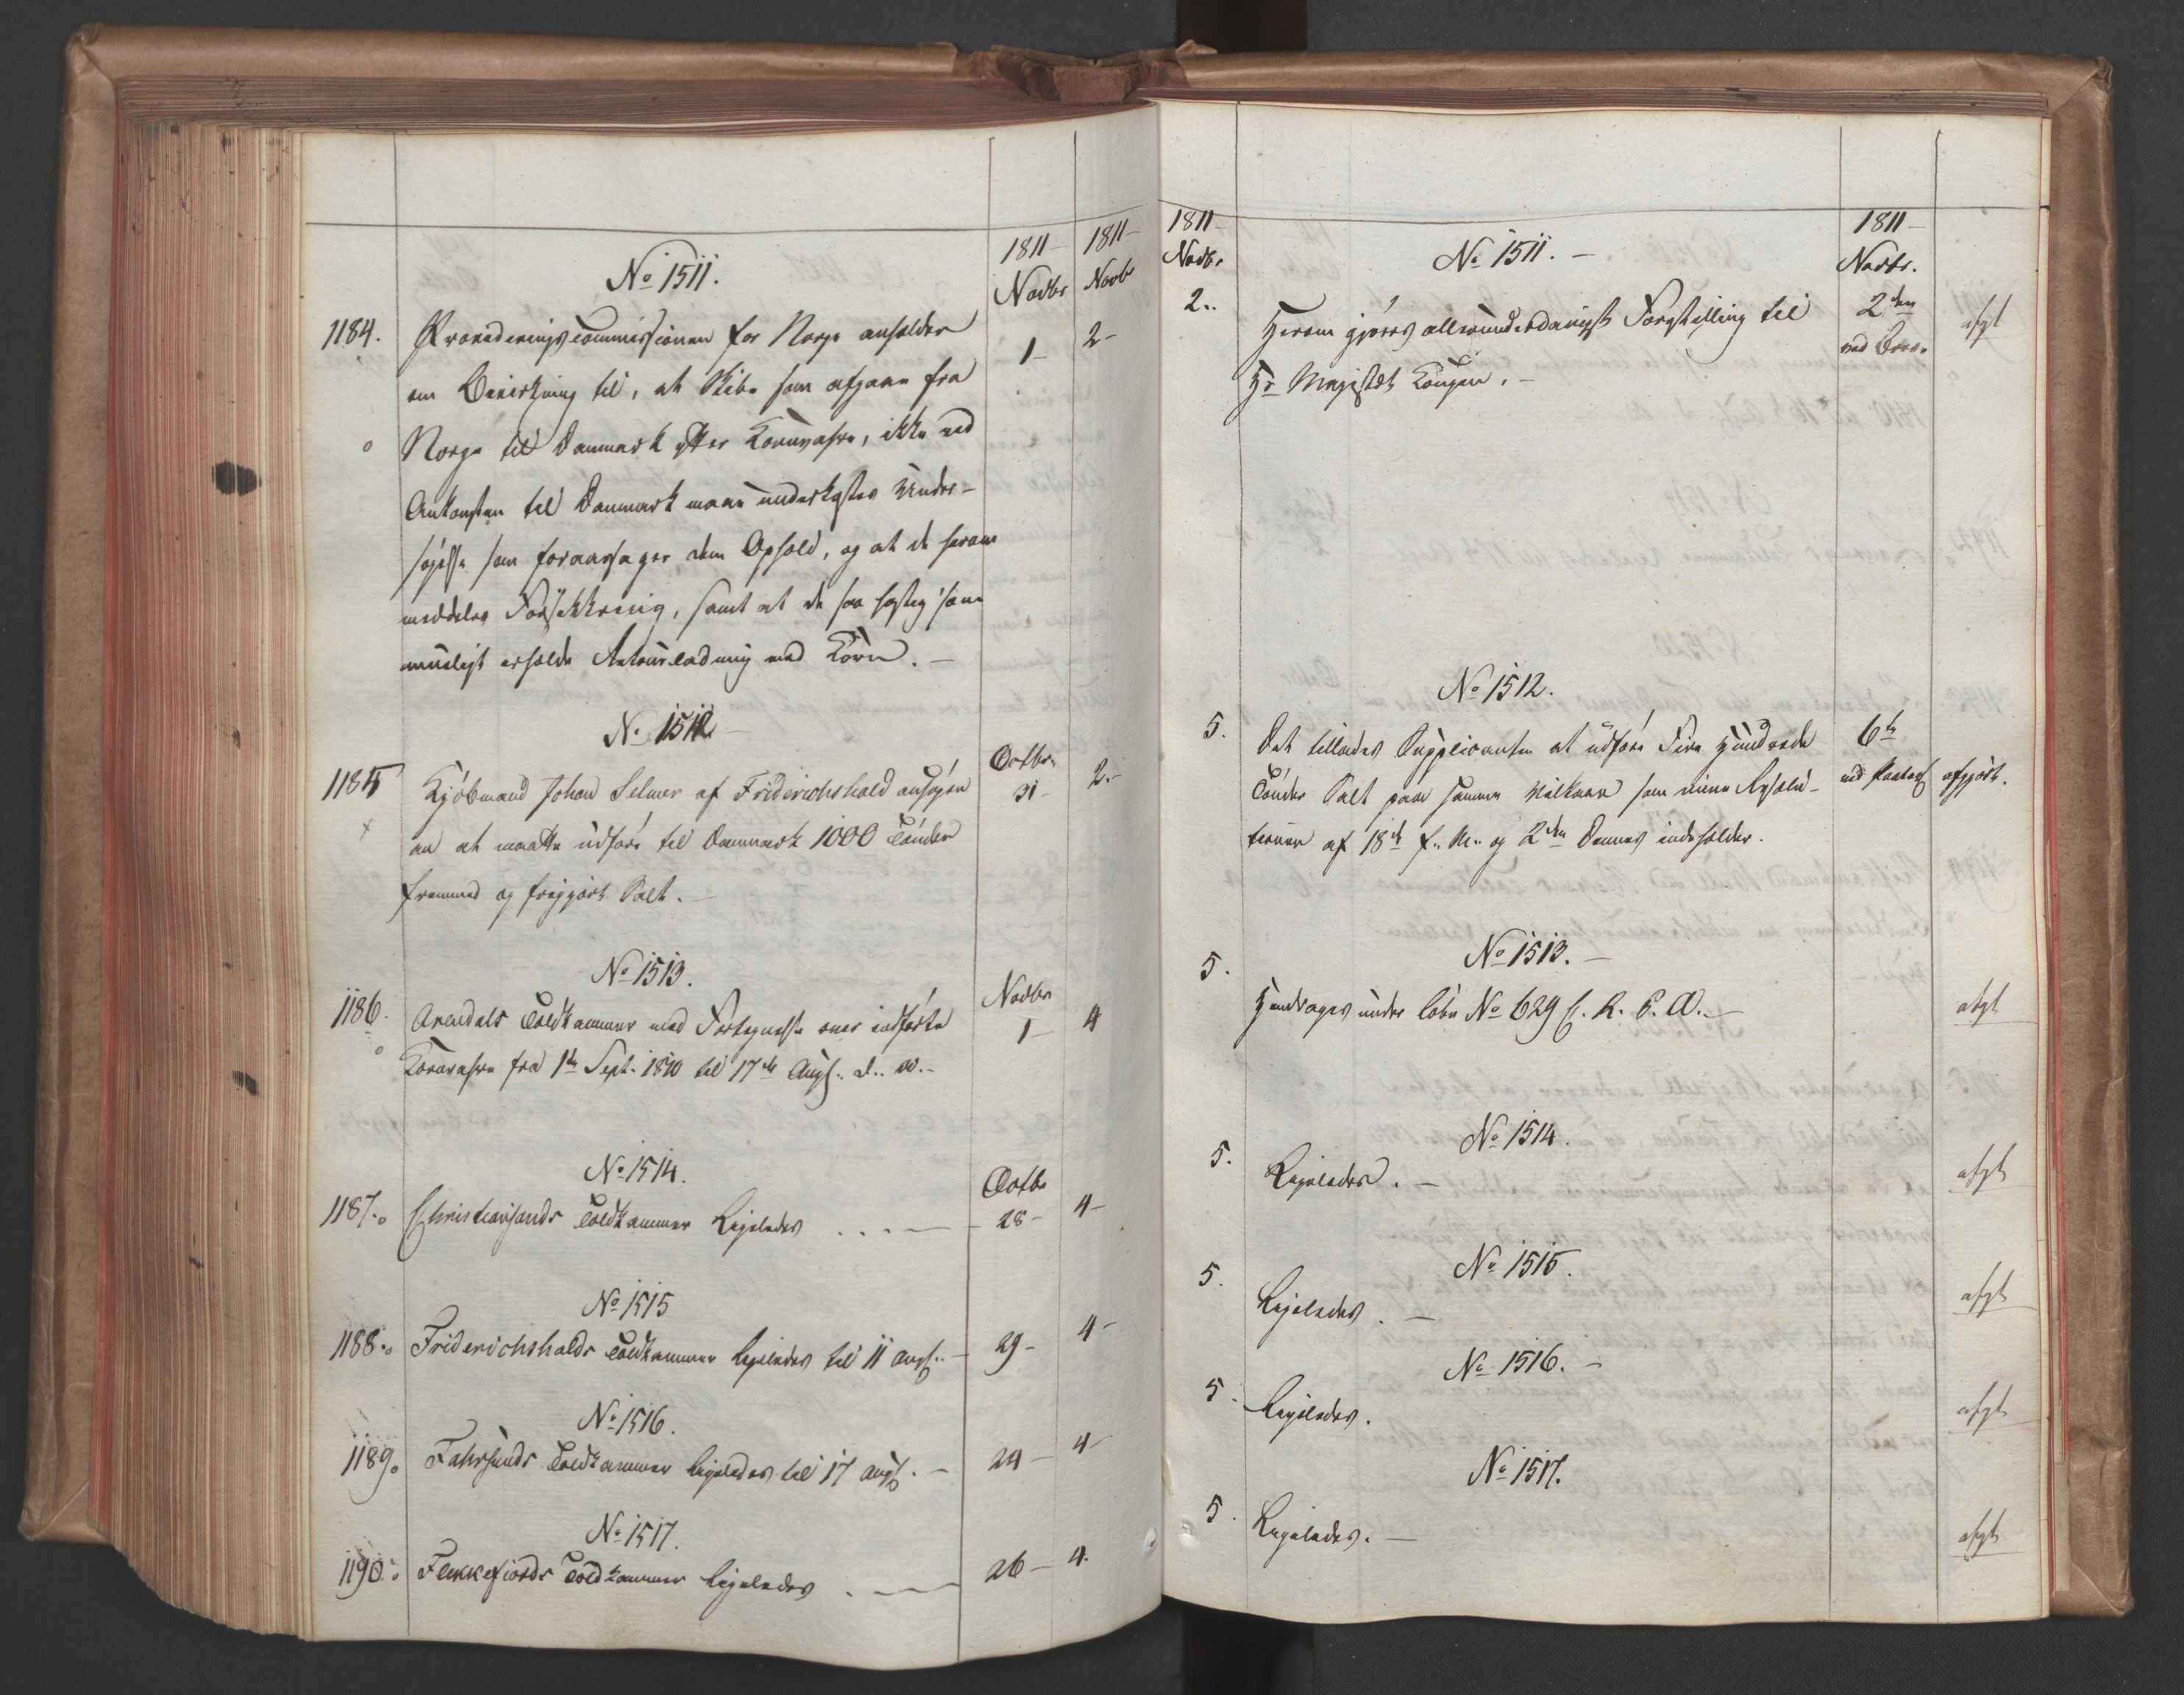 1811 – 1811 –
No 1511. Novbr Novbr
1184. Provideringscommissionen for Norge anholder 1 – 2 –
om Bevirkning til, at Skibe som afgaae fra
Norge til Danmark efter Kornvahre, ikke ved
Ankomsten til Danmark maae underkastes Under-
søgelse som foraarsager dem Ophold, og at de herom
meddeles Forsikkring, samt at de saa hastig som
mueligt erholde Retourladning med Korn. –
No 1512 –
1185 Kjøbmand Johan Selmer af Friderichshald ansøger Octbr. 31 – 2. –
om at maatte udføre til Danmark 1000 Tønder
fremmed og frigjort Salt. –
No 1513.
1186. Arendals Toldkammer med Fortegnelse over indførte Novbr 1 – 4
Kornvahre fra 1te Sept. 1810 til 17de Aug. d. A. –
No 1514.
1187. Christiansands Toldkammer Ligeledes . . . — Octbr 28 – 4 –
No 1515
1188. Friderichshalds Toldkammer ligeledes til 11 Aug. – 29 – 4 –
No 1516.
1189. Fahrsunds Toldkammer ligeledes til 17 Aug. – 24 – 4 –
No 1517.
1190. Flekkefiords Toldkammer ligeledes . — 26 – 4.
1811 – 1811 –
Novbr. No 1511. – Novbr.
2. Herom gjøres allerunderdanigst Forestilling til 2den afgt
Hs Majestæt Kongen. –
No 1512.
5. Det tillades Supplicanten at udføre Fire Hundrede 6te
Tønder Salt paa samme Vilkaar som mine Resolu- afgjort.
tioner af 18de f. M. og 2den Dennes indeholder.
No 1513. –
5. Hendrages under Løbe No 629 C. R. P. A. – afgt
No 1514.
5. Ligeledes. – afgt
No 1515.
5. Ligeledes. – afgt
No 1516. –
5 – Ligeledes. afgt
No 1517.
5. Ligeledes. – afgt